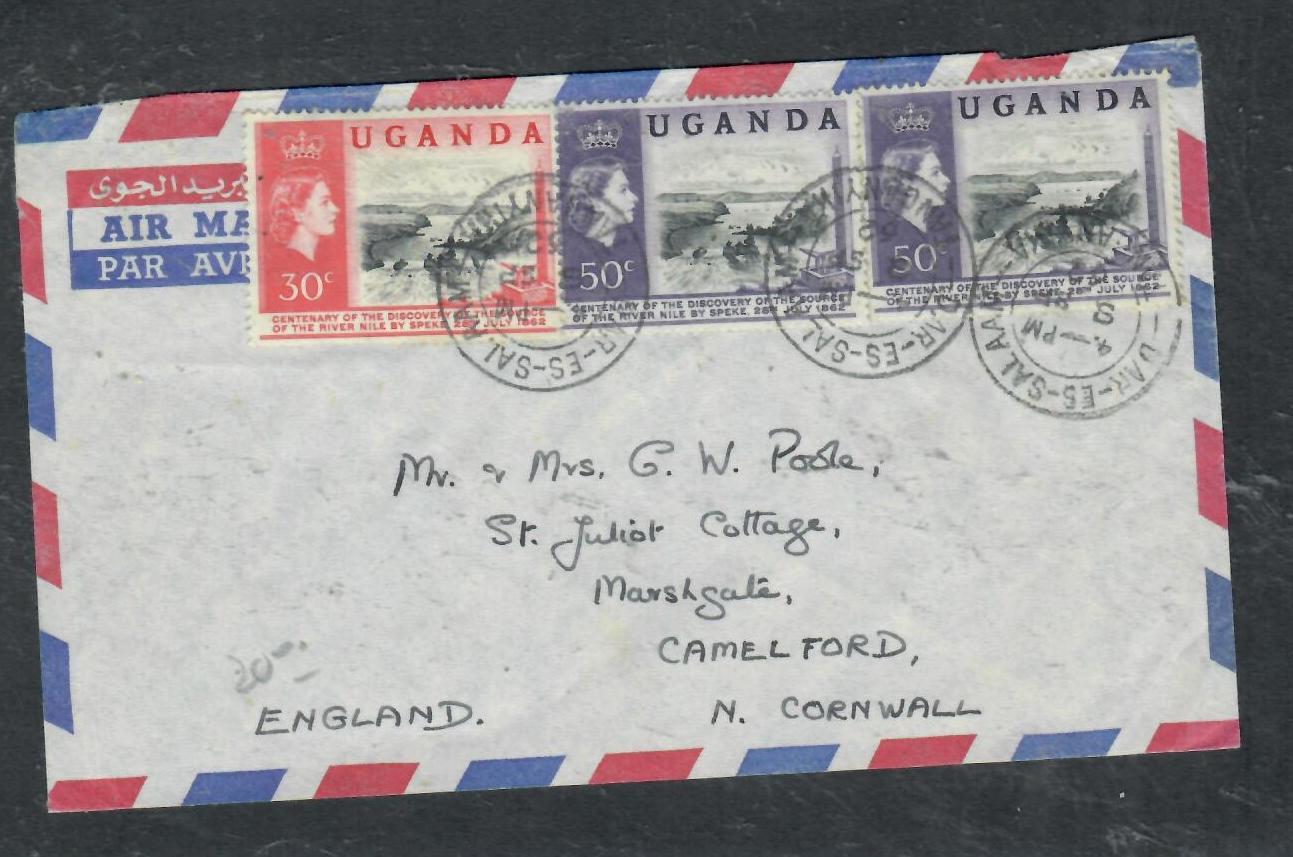 UGANDA
30c
CENTENARY OF THE DISCOVERY OF THE SOURCE
OF THE RIVER NILE BY SPEKE, 28TH JULY 1862
UGANDA
50c
CENTENARY OF THE DISCOVERY OF THE SOURCE
OF THE RIVER NILE BY SPEKE, 28TH JULY 1862
UGANDA
50c
CENTENARY OF THE DISCOVERY OF THE SOURCE
OF THE RIVER NILE BY SPEKE, 28TH JULY 1862
بريد الجوى
AIR MA
PAR AVI
AR-ES-SALA
DAR-ES-SAL
DAR-ES-SALAAM
4 - PM
Mr. & Mrs. G. W. Poole,
St. Juliot Cottage,
Marshgate,
CAMELFORD,
N. CORNWALL
ENGLAND.